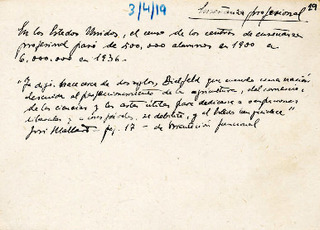 3/4/19
Enseñanza profesional 29
En los Estados Unidos, el censo de los centros de enseñanza
profesional pasó de 500,000 alumnos en 1900 a
6.000.000 en 1936.
"Ya dijo hace cerca de dos siglos, Bielfeld que cuando una nación
descuida el perfeccionamiento de la agricultura, del comercio,
de las ciencias y las artes útiles para dedicarse a ocupaciones
liberales y se debilita, y el Estado languidece"
José Mallart - pág. 17 - de funcional